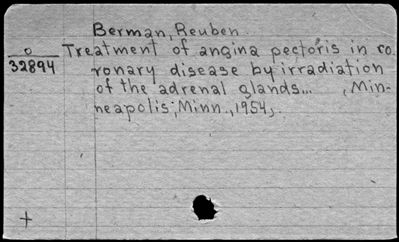 Berman, Reuben.
o
32894
Treatment of angina pectoris in co
ronary disease by irradiation
of the adrenal glands... , Min-
neapolis, Minn., 1954,.
+